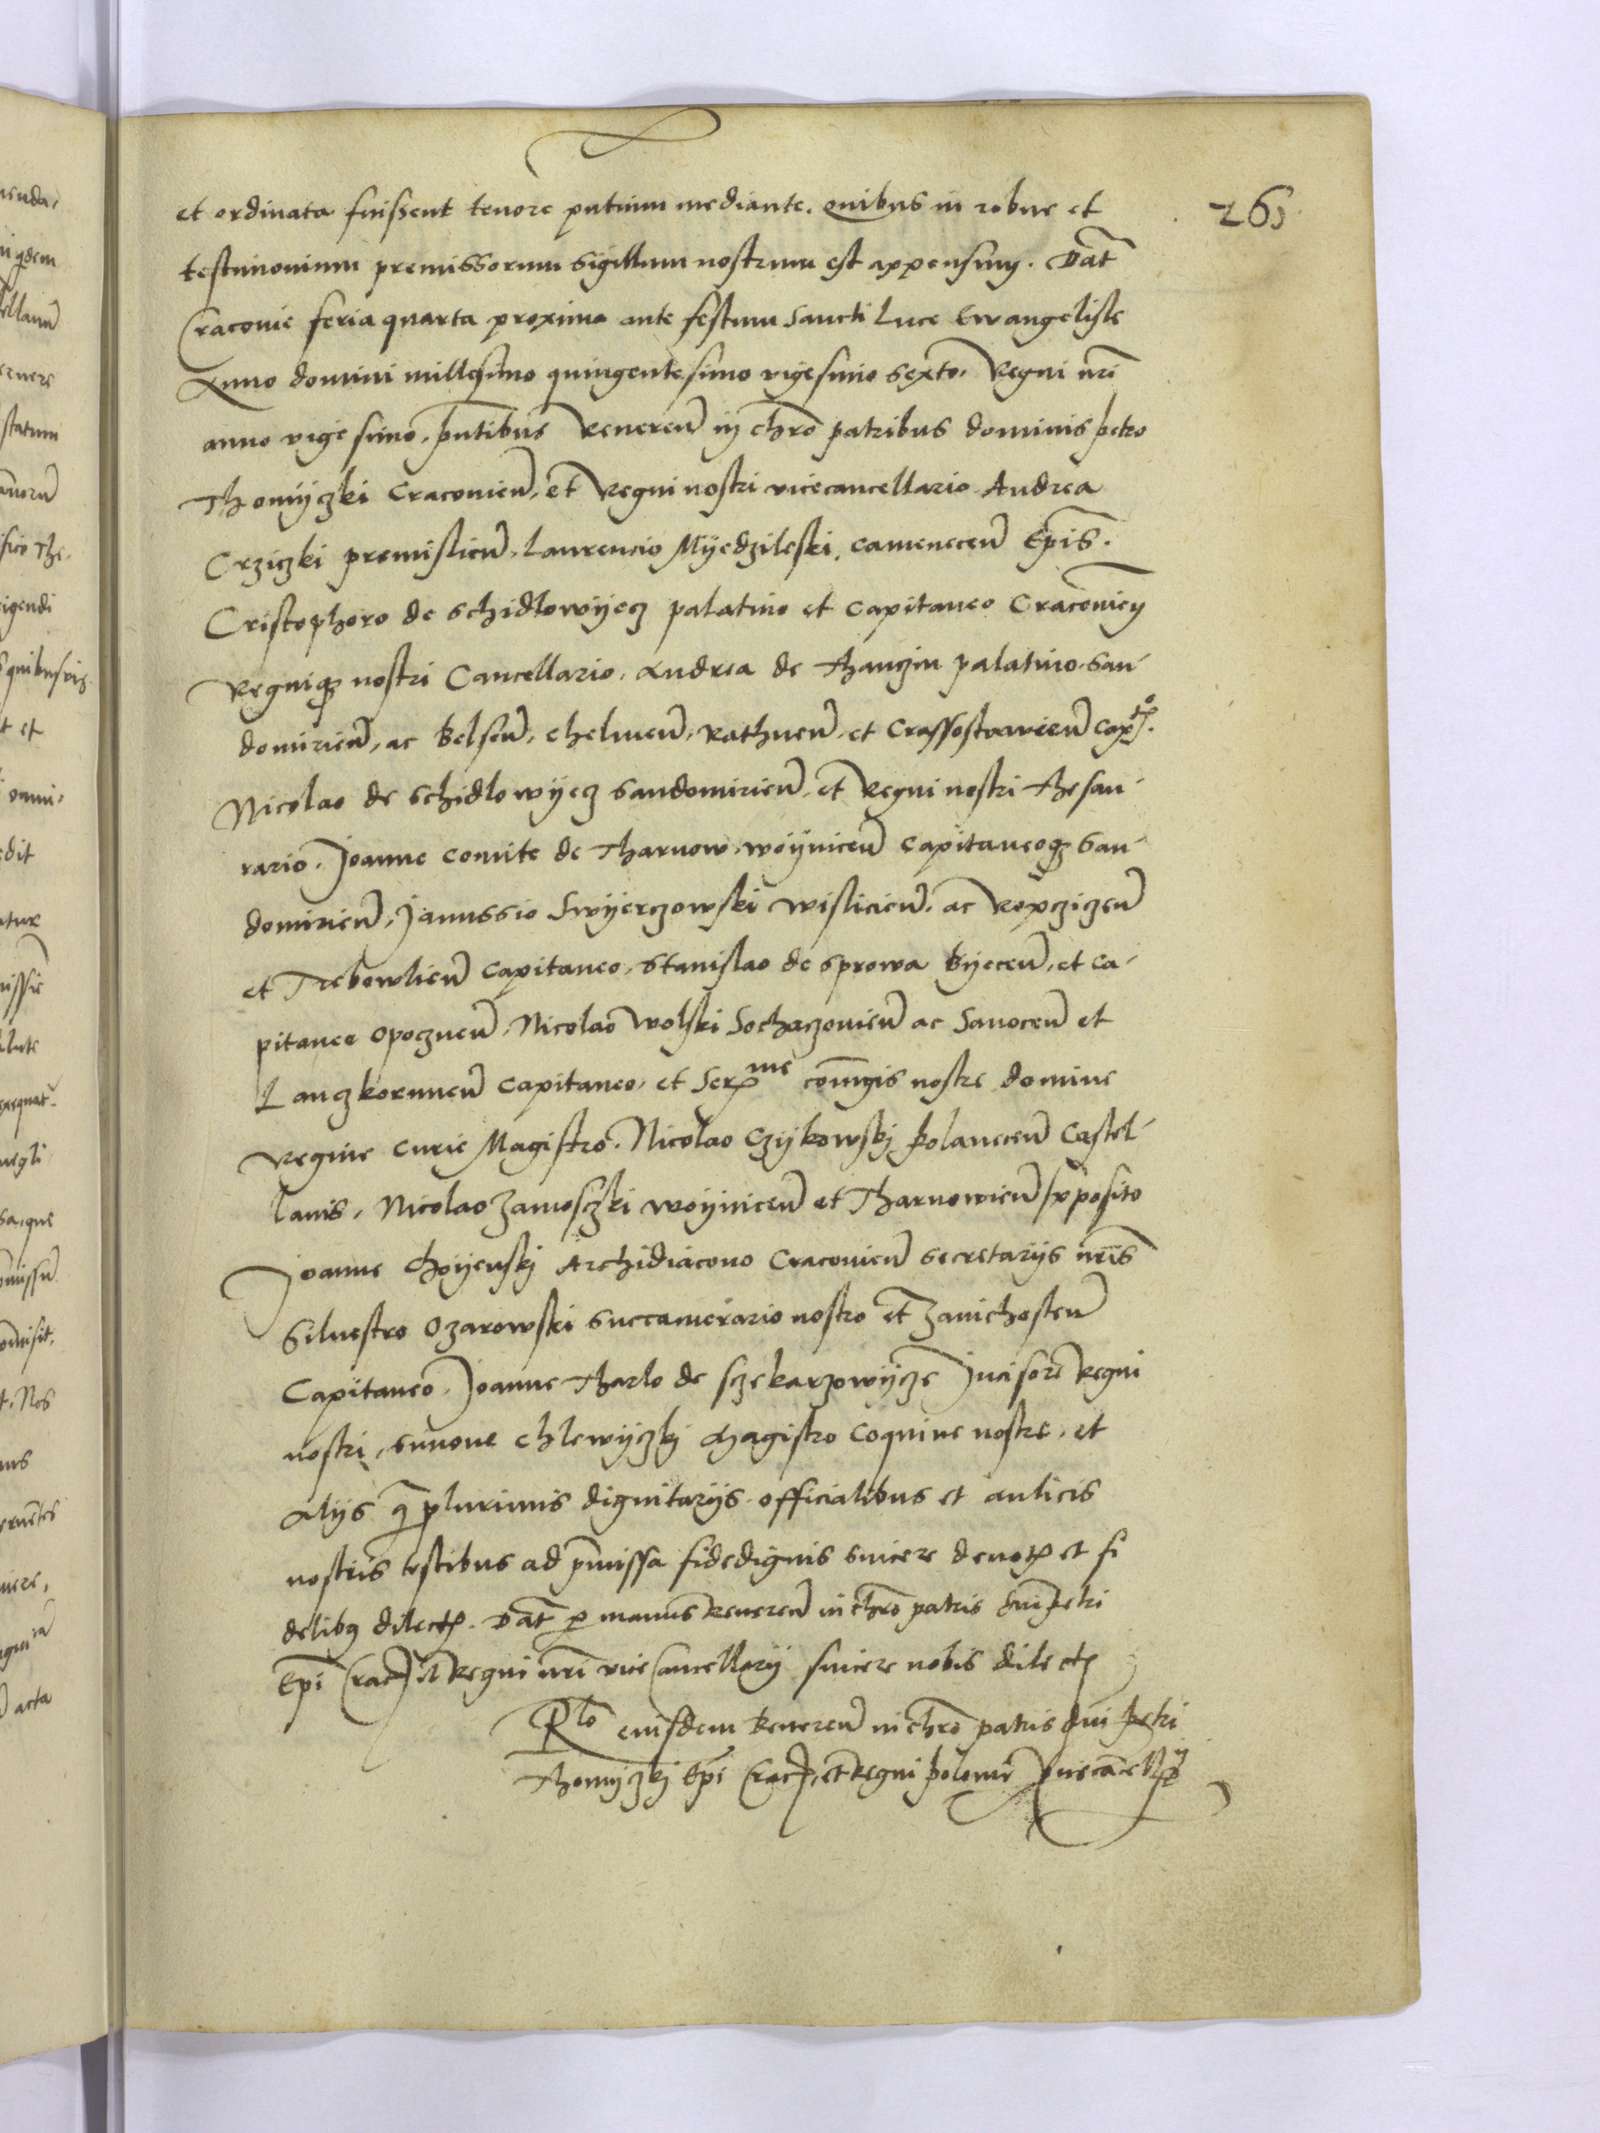 et ordinata fuissent tenore pntium mediante. quibus in robur et
testimonium premissorum sigillum nostrum est appensum. Dat
Cracovie feria quarta proxima ante festum Sancti Luce Ewangeliste
Anno domini millesimo quingentesimo vigesimo sexto, Regni nri
anno vigesimo, pntibus Reveren in chro patribus dominis petro
Thomÿczki Cracovien, et Regni nostri vicecancellario Andrea
Crziczki premislien, Laurencio Mÿedzileski, camenecen Epis.
Cristophoro de schidlowÿecz palatino et Capitaneo Cracovien
Regniq3 nostri Cancellario, Andrea de Thanczin palatino San-
domirien, ac Belsen, chelmen, Rathnen, et Crassostavien Cap
Nicolao de schidlowÿecz Sandomirien, et Regni nostri thesau-
rario, Joanne comite de Tharnow, woÿnicen Capitaneoq3 San-
domirien, Janussio Swÿerczowski wislicien, ac Ropczicen
et Trebowlien Capitaneo, Stanislao de Sprowa Byecen, et Ca-
pitaneo Opocznen, Nicolao Wolski Sochaczovien ac Sanocen et
Lanczkorunen Capitaneo, et Ser me coniugis nostre domine
Regine curie Magistro. Nicolao Czÿkowskj polanecen Castel-
lanis, Nicolao Zamosczki woÿnicen et Tharnowien pposito
Joanne Choÿenskj Archidiacono Cracovien Secretarÿs nris
Silvestro Ozarowski succamerario nostro et Zavichosten
Capitaneo, Joanne Tharlo de sczekarzowÿcze Incisore Regni
nostri, Simone Chlewÿczkj Magistro Coquine nostre, et
Alÿs q plurimis dignitarÿs officialibus et aulicis
nostris testibus ad pmissa fidedignis sincere devot et fi
delib9 dilect. Dat p manus Reveren in chro patris dni petri
Epi Crac et Regni nri vice Cancellarÿ sincere nobis dilect
Rlo eiusdem Reveren in chro patris dni petri
Thomÿczkj Epi Crac, et Regni polonie vicecancell